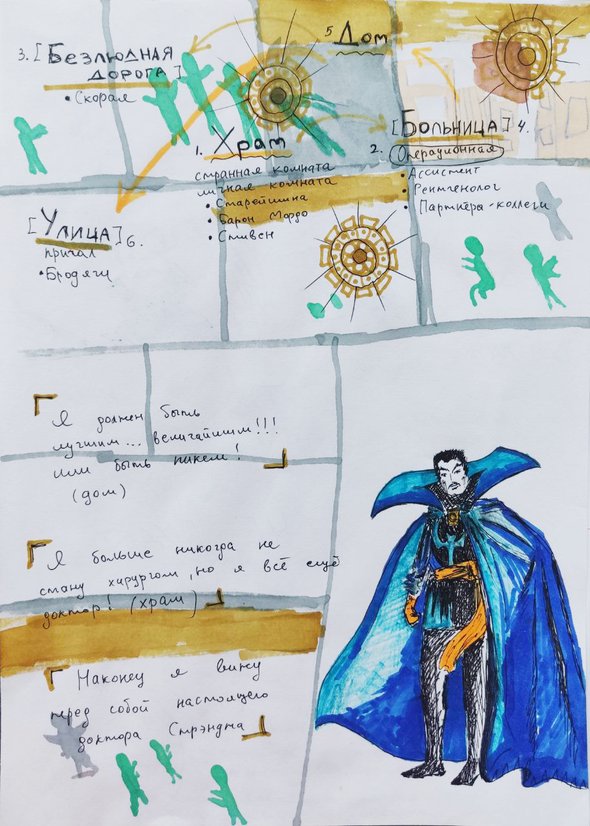 3. [Безлюдная
дорога]
• Скорая
5 Дом
1. Храм
странная комната
личная комната
• Старейшина
• Барон Мордо
• Стивен
[Больница] 4.
2. Операционная
• Ассистент
• Рентгенолог
• Партнёры-коллеги
[Улица] 6.
причал
• Бродяги
Я должен быть
лучшим... величайшим!!!
или быть никем!
(дом)
Я больше никогда не
стану хирургом, но я всё ещё
доктор! (храм)
Наконец я вижу
перед собой настоящего
доктора Стрэнджа